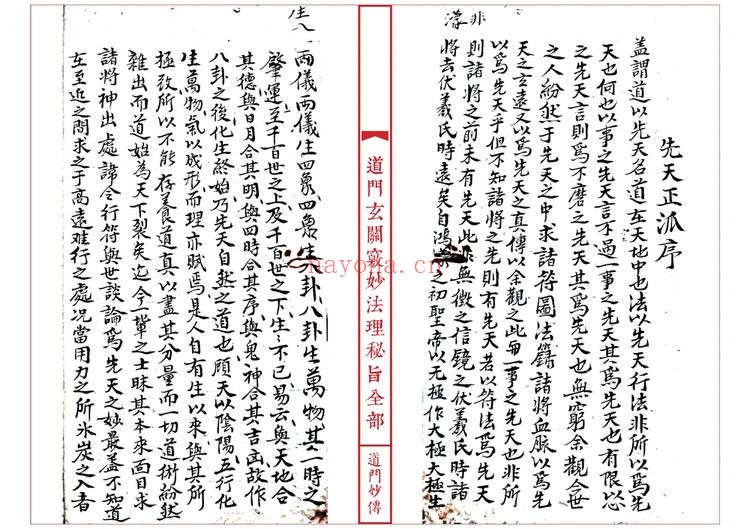 先天正派序
盖謂道以先天名道在天地中也法以先天行法非所以爲先
天也何也以事之先天言不過一事之先天其爲先天也有限以心
之先天言則爲不磨之先天其爲先天也無窮余觀今世
之人紛然于先天之中求諸符圖法籙諸將血脈以爲先
天之玄遠又以爲先天之真傳以余觀之此毋一事之先天也非所
以爲先天乎但不知諸將之先則有先天若以符法爲先天
則諸將之前未有先天此非無徵之信鏡之伏羲氏時諸
將去伏羲氏時遠矣自鴻濛之初聖帝以無極作太極大極生
非
濛
道門玄關竅妙法理秘旨全部
道門妙傳
nayona.cn
生八
兩儀兩儀生四象四象生八卦八卦生萬物其一時之
肇運至千百世之上及千百世之下生生不已易云與天地合
其德與日月合其明與四時合其序與鬼神合其吉凶故作
八卦之後化生終始乃先天自然之道也顧天以陰陽五行化
生萬物氣以成形而理亦賦焉是人自有生以來與其所
極致所以不能存養道真以盡其分量而一切道術紛然
雜出而道始為天下裂矣迄今一輩之士昧其本來面目求
諸將神出處諱令行符與世談論爲先天之妙最盖不知道
在至近之間求之于高遠难行之處况當用力之所氷炭之入者